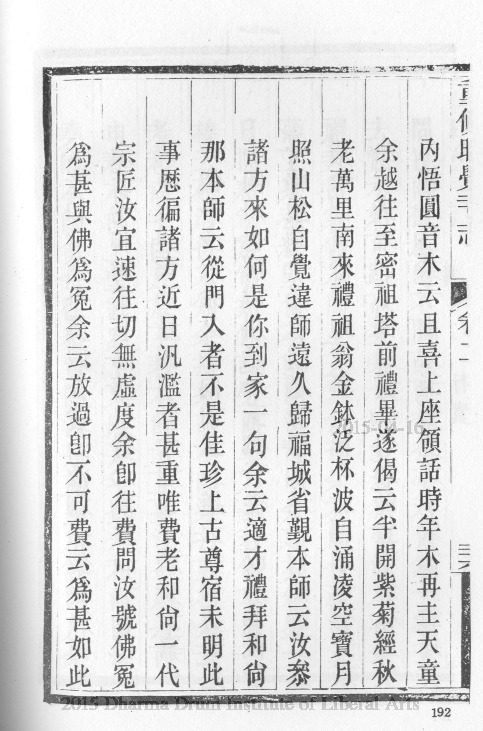 重修昭覺寺志
卷二
內悟圓音木云且喜上座領話時年木再主天童
余越往至密祖塔前禮畢遂偈云半開紫菊經秋
老萬里南來禮祖翁金鉢泛杯波自涌凌空寶月
照山松自覺違師遠久歸福城省覲本師云汝叅
諸方來如何是你到家一句余云適才禮拜和尙
那本師云從門入者不是佳珍上古尊宿未明此
事歷徧諸方近日汎濫者甚重唯費老和尙一代
宗匠汝宜速往切無虛度余卽往費問汝號佛冤
爲甚與佛爲冤余云放過卽不可費云爲甚如此
2015-01-16
2015 Dharma Drum Institute of Liberal Arts
192